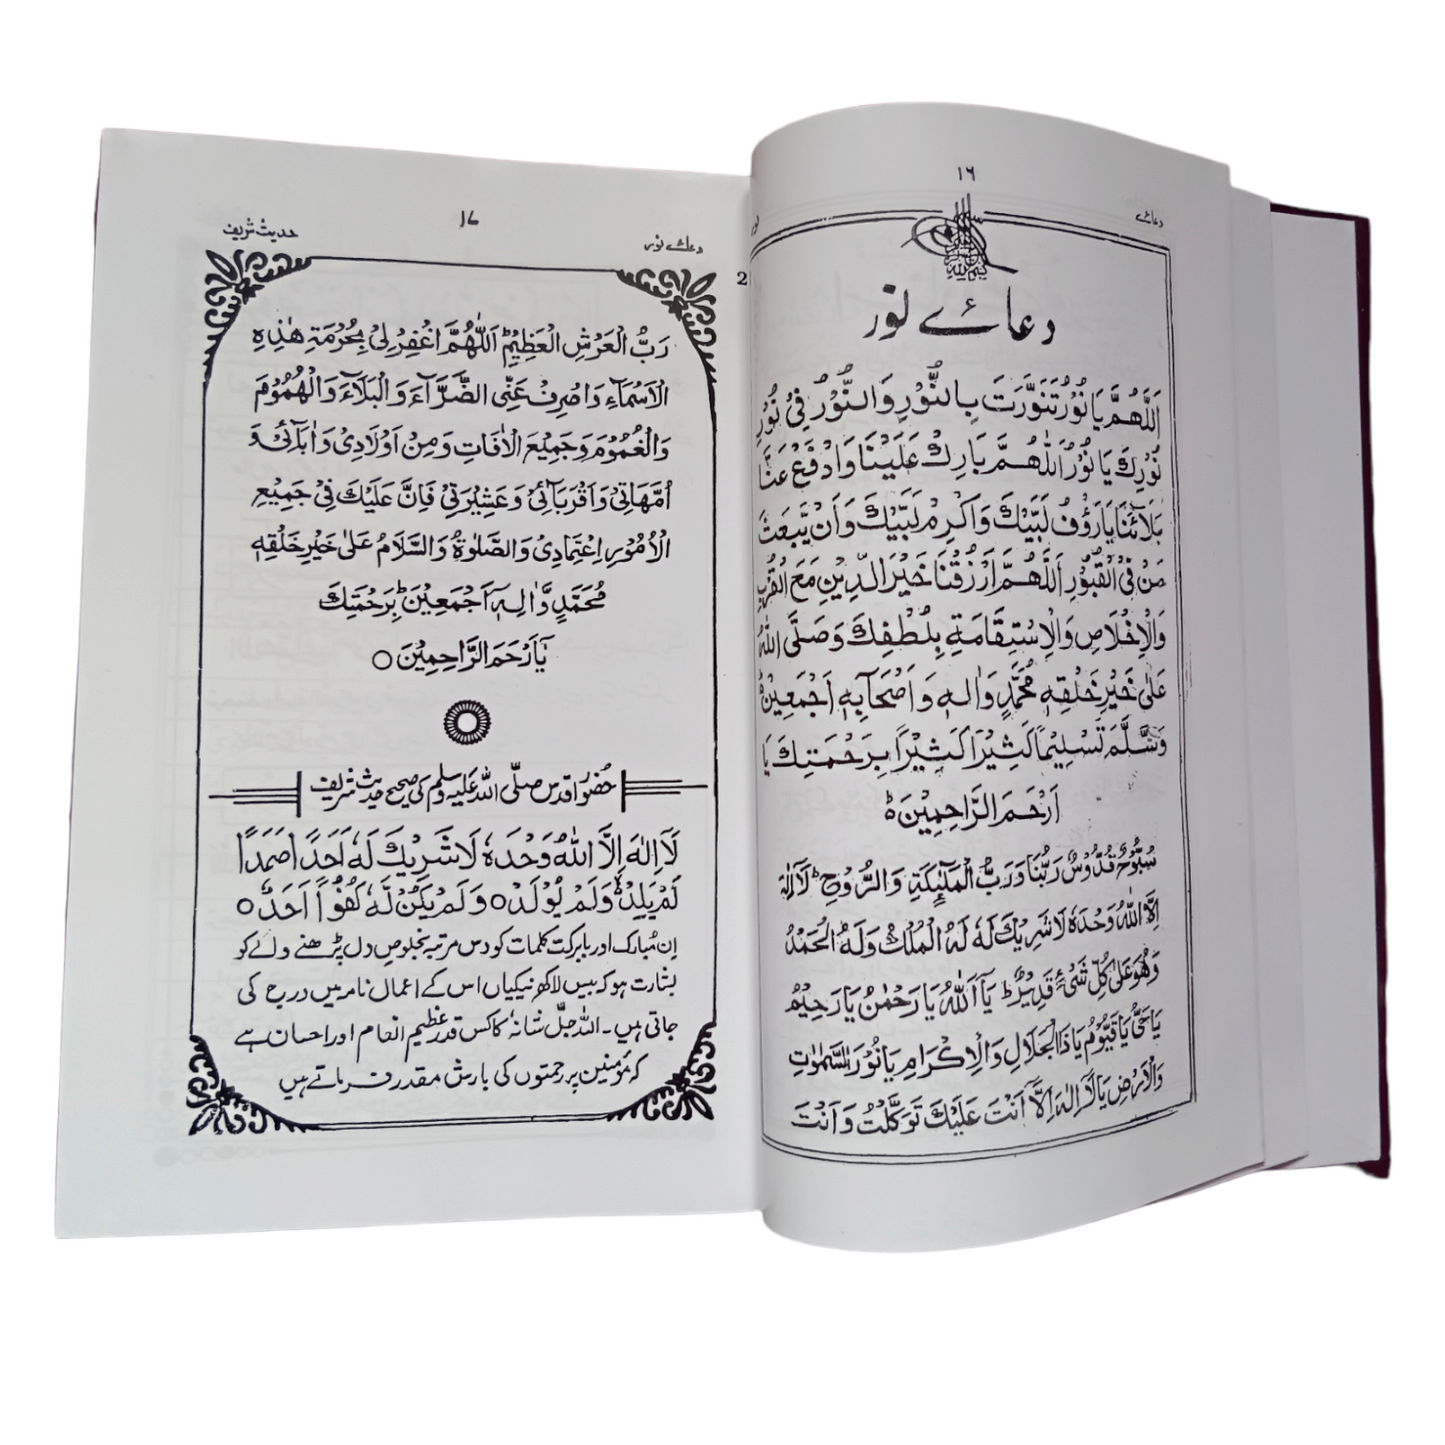 ١٦
دعائے
دعائے نور
اَللّٰهُمَّ يَا نُوْرُ تَنَوَّرْتَ بِالنُّوْرِ وَالنُّوْرُ فِيْ نُوْرِ
نُوْرِكَ يَا نُوْرُ اَللّٰهُمَّ بَارِكْ عَلَيْنَا وَادْفَعْ عَنَّا
بَلَآئَنَا يَا رَؤُفُ لَبَّيْكَ وَاَكْرِمْ لَبَّيْكَ وَاَنْ يَّبْعَثَ
مَنْ فِي الْقُبُوْرِ اَللّٰهُمَّ ارْزُقْنَا خَيْرَ الدِّيْنِ مَعَ الْقُرْبِ
وَالْاِخْلَاصِ وَالْاِسْتِقَامَةِ بِلُطْفِكَ وَصَلَّى اللّٰهُ
عَلٰى خَيْرِ خَلْقِهٖ مُحَمَّدٍ وَاٰلِهٖ وَاَصْحَابِهٖ اَجْمَعِيْنَ ط
وَسَلَّمَ تَسْلِيْمًا كَثِيْرًا كَثِيْرًا بِرَحْمَتِكَ يَا
اَرْحَمَ الرَّاحِمِيْنَ ط
سُبُّوْحٌ قُدُّوْسٌ رَبُّنَا وَرَبُّ الْمَلٰٓئِكَةِ وَالرُّوْحِ ط لَآ اِلٰهَ
اِلَّا اللّٰهُ وَحْدَهٗ لَا شَرِيْكَ لَهٗ لَهُ الْمُلْكُ وَلَهُ الْحَمْدُ
وَهُوَ عَلٰى كُلِّ شَیْءٍ قَدِيْرٌ ط يَآ اَللّٰهُ يَا رَحْمٰنُ يَا رَحِيْمُ
يَا حَيُّ يَا قَيُّوْمُ يَا ذَا الْجَلَالِ وَالْاِكْرَامِ يَا نُوْرَ السَّمٰوٰتِ
وَالْاَرْضِ يَا لَآ اِلٰهَ اِلَّآ اَنْتَ عَلَيْكَ تَوَكَّلْتُ وَاَنْتَ
دعائے نور
١٧
حدیث شریف
2
رَبُّ الْعَرْشِ الْعَظِيْمِ ط اَللّٰهُمَّ اغْفِرْ لِيْ بِحُرْمَةِ هٰذِهِ
الْاَسْمَآءِ وَاصْرِفْ عَنِّي الضَّرَّآءَ وَالْبَلَآءَ وَالْهُمُوْمَ
وَالْغُمُوْمَ وَجَمِيْعَ الْاٰفَاتِ وَمِنْ اَوْلَادِيْ وَاٰبَآئِيْ وَ
اُمَّهَاتِيْ وَاَقْرَبَآئِيْ وَعَشِيْرَتِيْ فَاِنَّ عَلَيْكَ فِيْ جَمِيْعِ
الْاُمُوْرِ اعْتِمَادِيْ وَالصَّلٰوةُ وَالسَّلَامُ عَلٰى خَيْرِ خَلْقِهٖ
مُحَمَّدٍ وَّاٰلِهٖ اَجْمَعِيْنَ ط بِرَحْمَتِكَ
يَآ اَرْحَمَ الرَّاحِمِيْنَ ○
حضور اقدس صلی اللہ علیہ وسلم کی صحیح حدیث شریف
لَآ اِلٰهَ اِلَّا اللّٰهُ وَحْدَهٗ لَا شَرِيْكَ لَهٗ اَحَدًا صَمَدًا
لَمْ يَلِدْ وَلَمْ يُوْلَدْ ○ وَلَمْ يَكُنْ لَّهٗ كُفُوًا اَحَدٌ ○
اِن مُبارک اور بابرکت کلمات کو دس مرتبہ بخلوصِ دل پڑھنے والے کو
بشارت ہو کہ بیس لاکھ نیکیاں اس کے اعمال نامہ میں درج کی
جاتی ہیں۔ اللہ جلّ شانہٗ کا کس قدر عظیم انعام اور احسان ہے
کہ مومنین پر رحمتوں کی بارش مقدر فرماتے ہیں